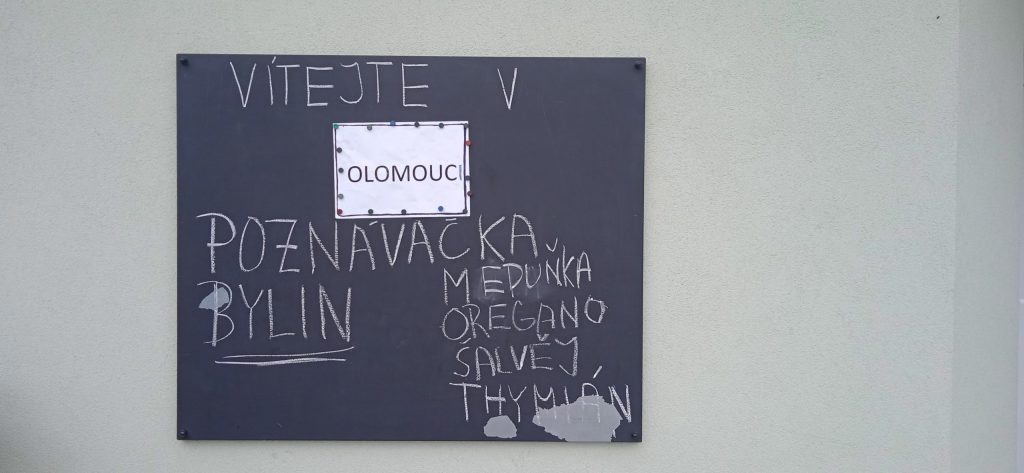 VÍTEJTE V
OLOMOUCI
POZNÁVAČKA
BYLIN
MEDUŇKA
OREGANO
ŠALVĚJ
THYMIÁN